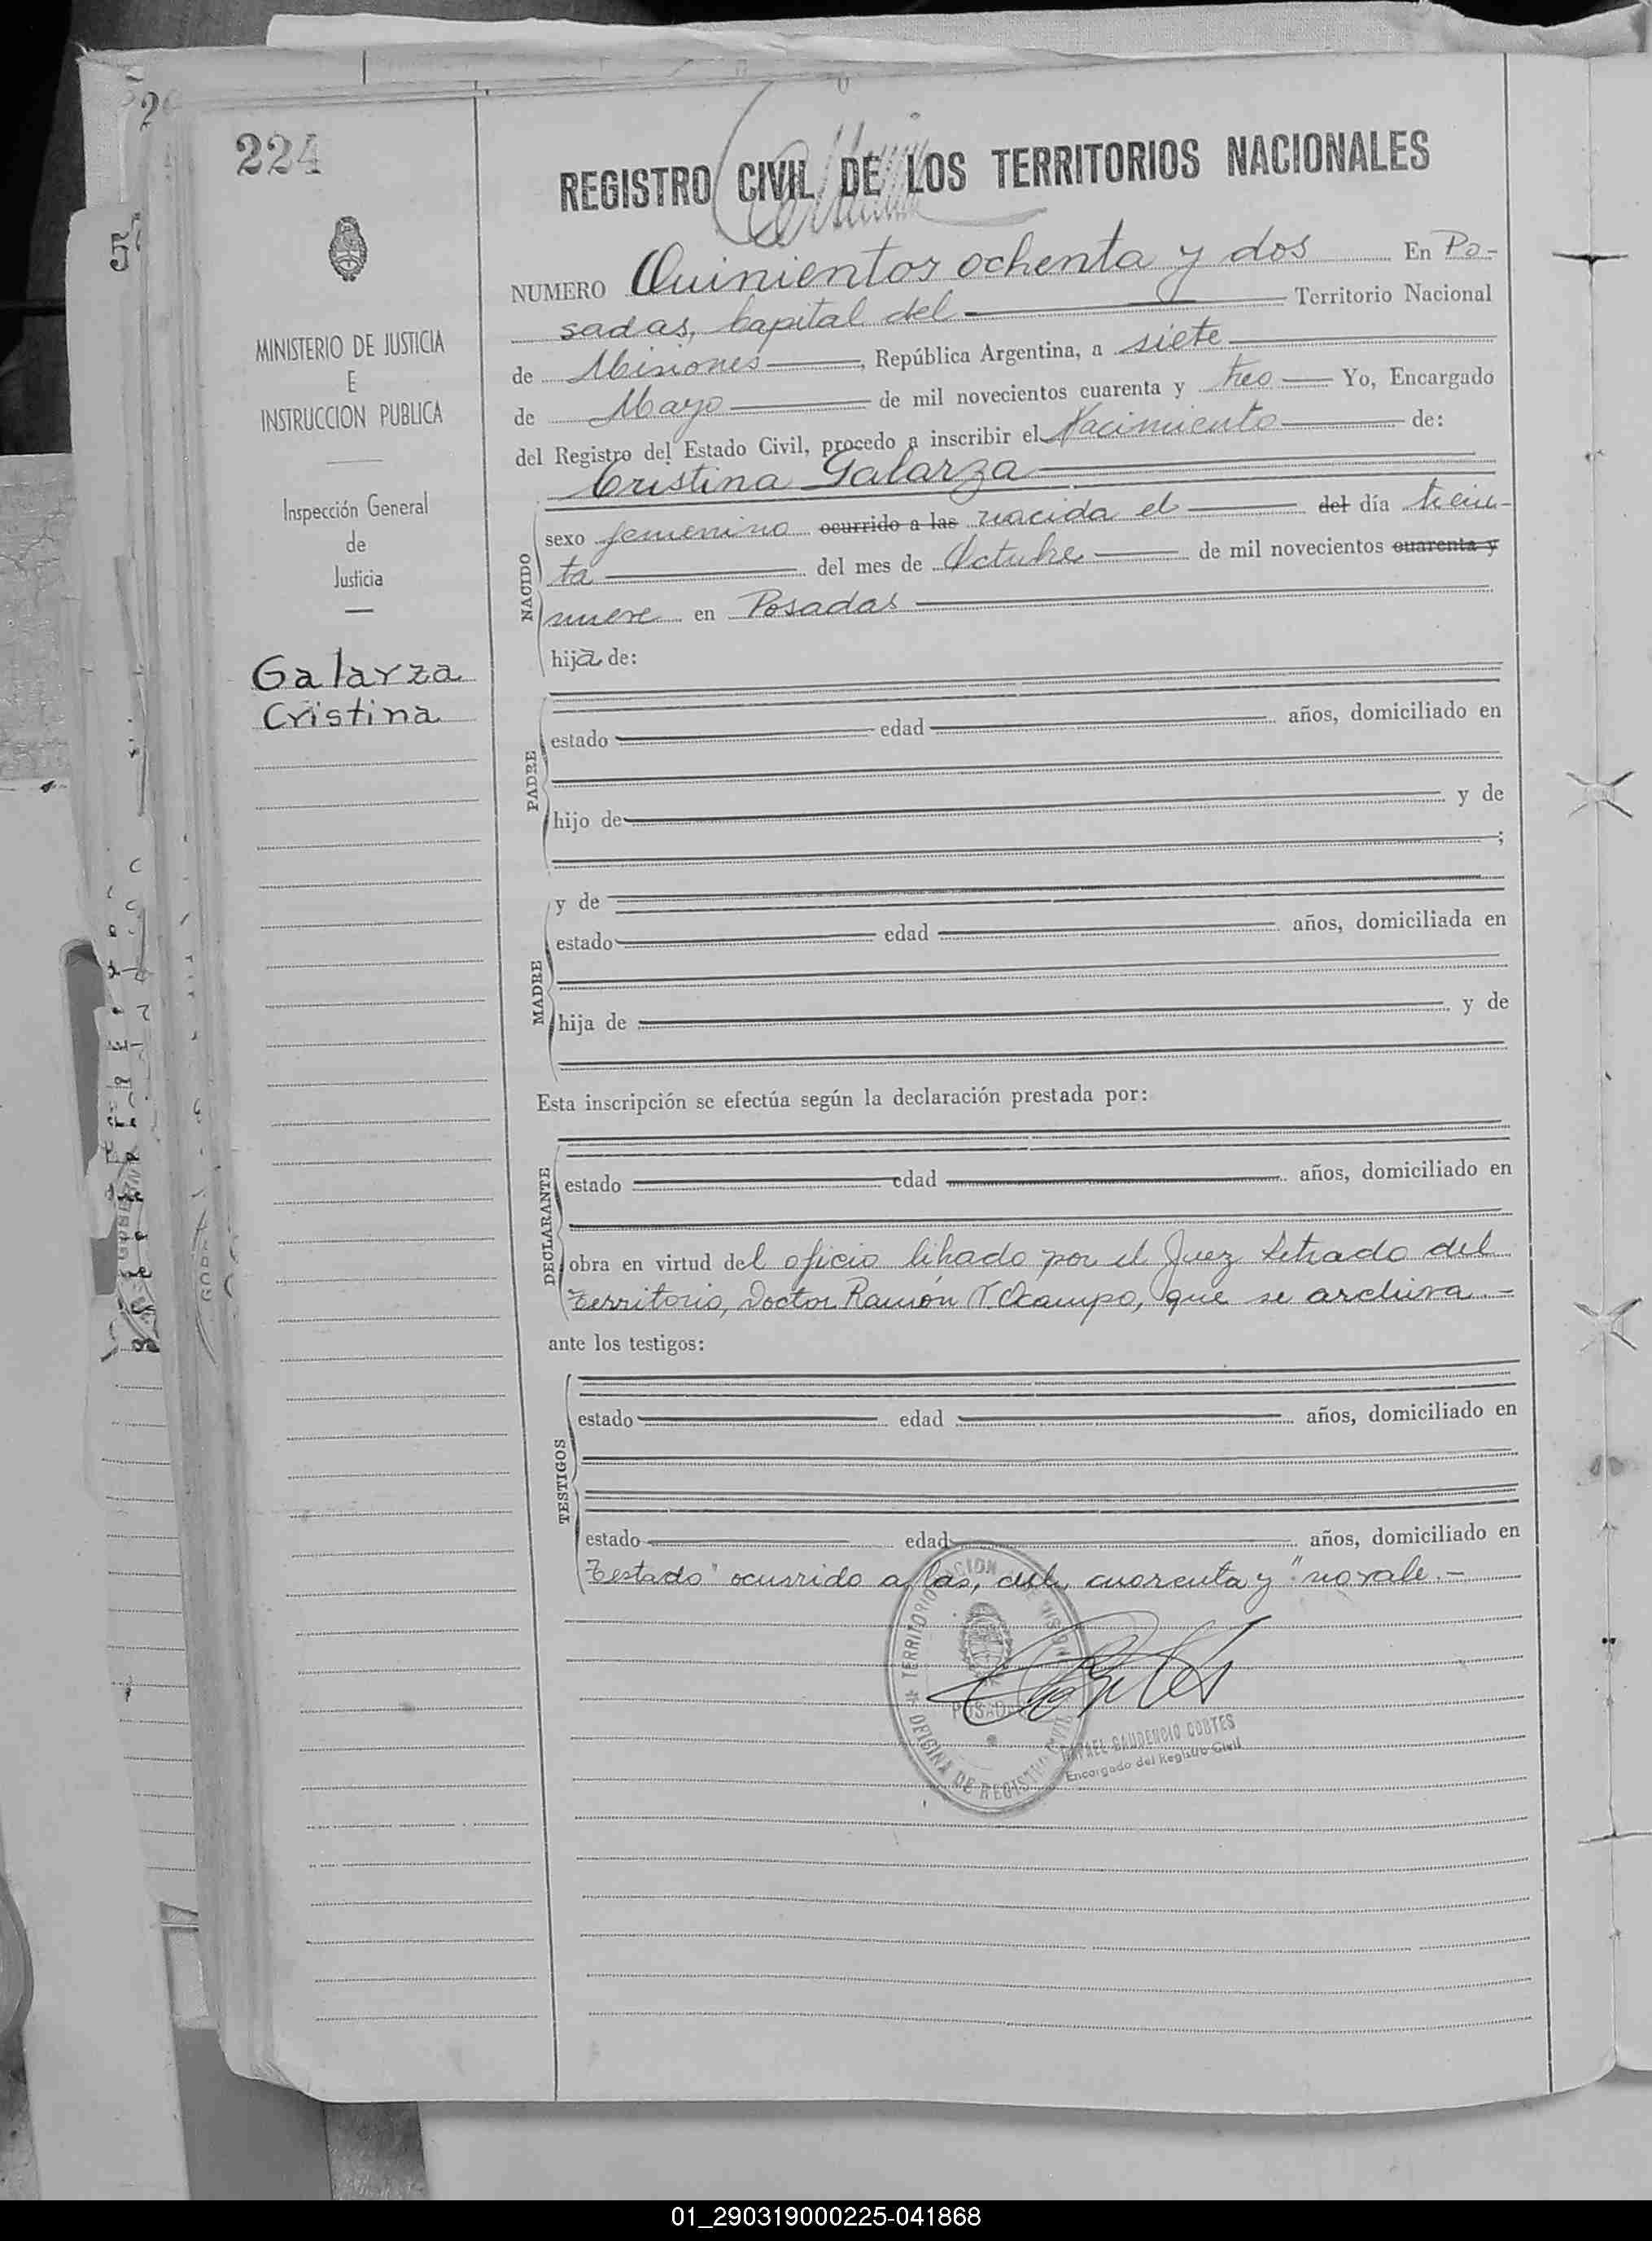 224
REGISTRO CIVIL DE LOS TERRITORIOS NACIONALES
MINISTERIO DE JUSTICIA
E
INSTRUCCION PUBLICA
Inspección General
de
Justicia
Galarza
Cristina
NUMERO Quinientos ochenta y dos En Po-
sadas, Capital del Territorio Nacional
de Misiones, República Argentina, a siete
de Mayo de mil novecientos cuarenta y tres Yo, Encargado
del Registro del Estado Civil, procedo a inscribir el Nacimiento de:
Cristina Galarza
NACIDO
sexo femenino ocurrido a las nacida el del día trein-
ta del mes de Octubre de mil novecientos cuarenta y
nueve en Posadas
hija de:
PADRE
estado edad años, domiciliado en
hijo de y de
;
MADRE
y de
estado edad años, domiciliada en
hija de y de
Esta inscripción se efectúa según la declaración prestada por:
DECLARANTE
estado edad años, domiciliado en
obra en virtud del oficio librado por el Juez Letrado del
Territorio, Doctor Ramón T. Ocampo, que se archiva.-
ante los testigos:
TESTIGOS
estado edad años, domiciliado en
estado edad años, domiciliado en
Testado "ocurrido a las, del, cuarenta y" no vale.-
POSADAS
OFICINA DE REGISTRO CIVIL
RAFAEL GAUDENCIO CORTES
Encargado del Registro Civil
01_290319000225-041868